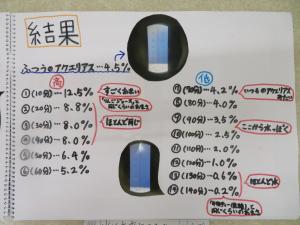 結果
ふつうのアクエリアス…4.5%
高
①(10分)…12.5%
すごくあまい
②(20分)…8.8%
③(30分)…8.0%
ほとんど同じ
④(40分)…8.0%
⑤(50分)…6.4%
⑥(60分)…5.2%
低
⑦(70分)…4.2%
いつものアクエリアス
⑧(80分)…4.0%
⑨(90分)…3.6%
ここから水っぽく
⑩(100分)…2.5%
⑪(110分)…2.0%
⑫(120分)…1.0%
⑬(130分)…0.6%
ほとんど水
⑭(140分)…0.2%